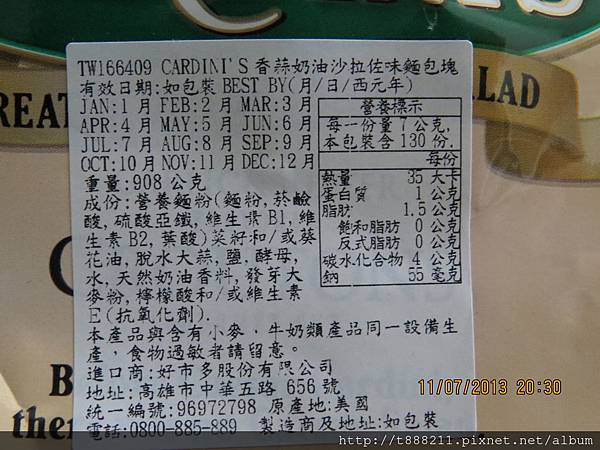 TW166409 CARDINI'S 香蒜奶油沙拉佐味麵包塊
有效日期:如包裝BEST BY(月/日/西元年)
JAN:1月 FEB:2月 MAR:3月
APR:4月 MAY:5月 JUN:6月
JUL:7月 AUG:8月 SEP:9月
OCT:10月 NOV:11月 DEC:12月
重量:908 公克
成份:營養麵粉(麵粉,菸鹼
酸,硫酸亞鐵,維生素B1,維
生素B2,葉酸)菜籽和/或葵
花油,脫水大蒜,鹽,酵母,
水,天然奶油香料,發芽大
麥粉,檸檬酸和/或維生素
E(抗氧化劑).
本產品與含有小麥,牛奶類產品同一設備生
產,食物過敏者請留意。
進口商:好市多股份有限公司
地址:高雄市中華五路 656號
統一編號:96972798 原產地:美國
電話:0800-885-889 製造商及地址:如包裝
營養標示
每一份量 7 公克,
本包裝含 130 份.
每份
熱量 35 大卡
蛋白質 1 公克
脂肪 1.5 公克
飽和脂肪 0 公克
反式脂肪 0 公克
碳水化合物 4 公克
鈉 55 毫克
11/07/2013 20:30
http://t888211.pixnet.net/album